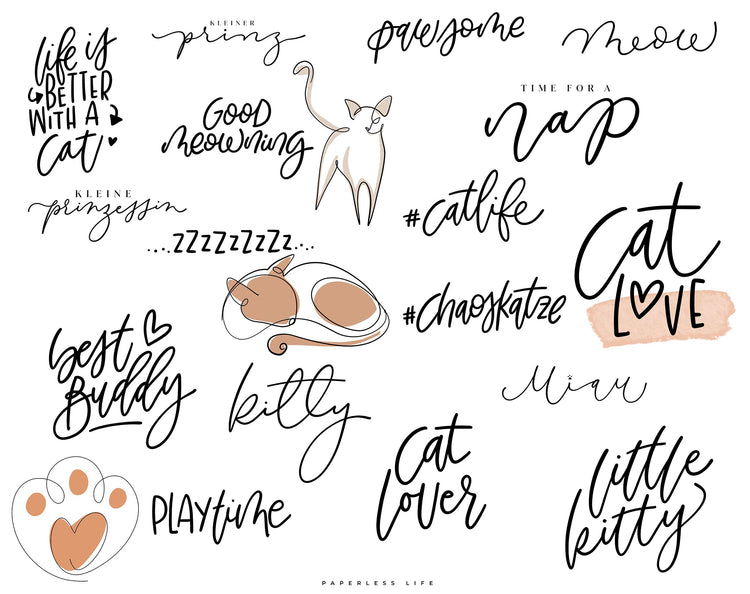 life is
BETTER
WITH A
cat
KLEINER
prinz
pawsome
meow
GOOD
meowning
TIME FOR A
nap
KLEINE
prinzessin
#catlife
....zzzzzzzzz....
cat
LOVE
#chaoskatze
best
Buddy
kitty
Miau
cat
lover
little
kitty
PLAYtime
PAPERLESS LIFE